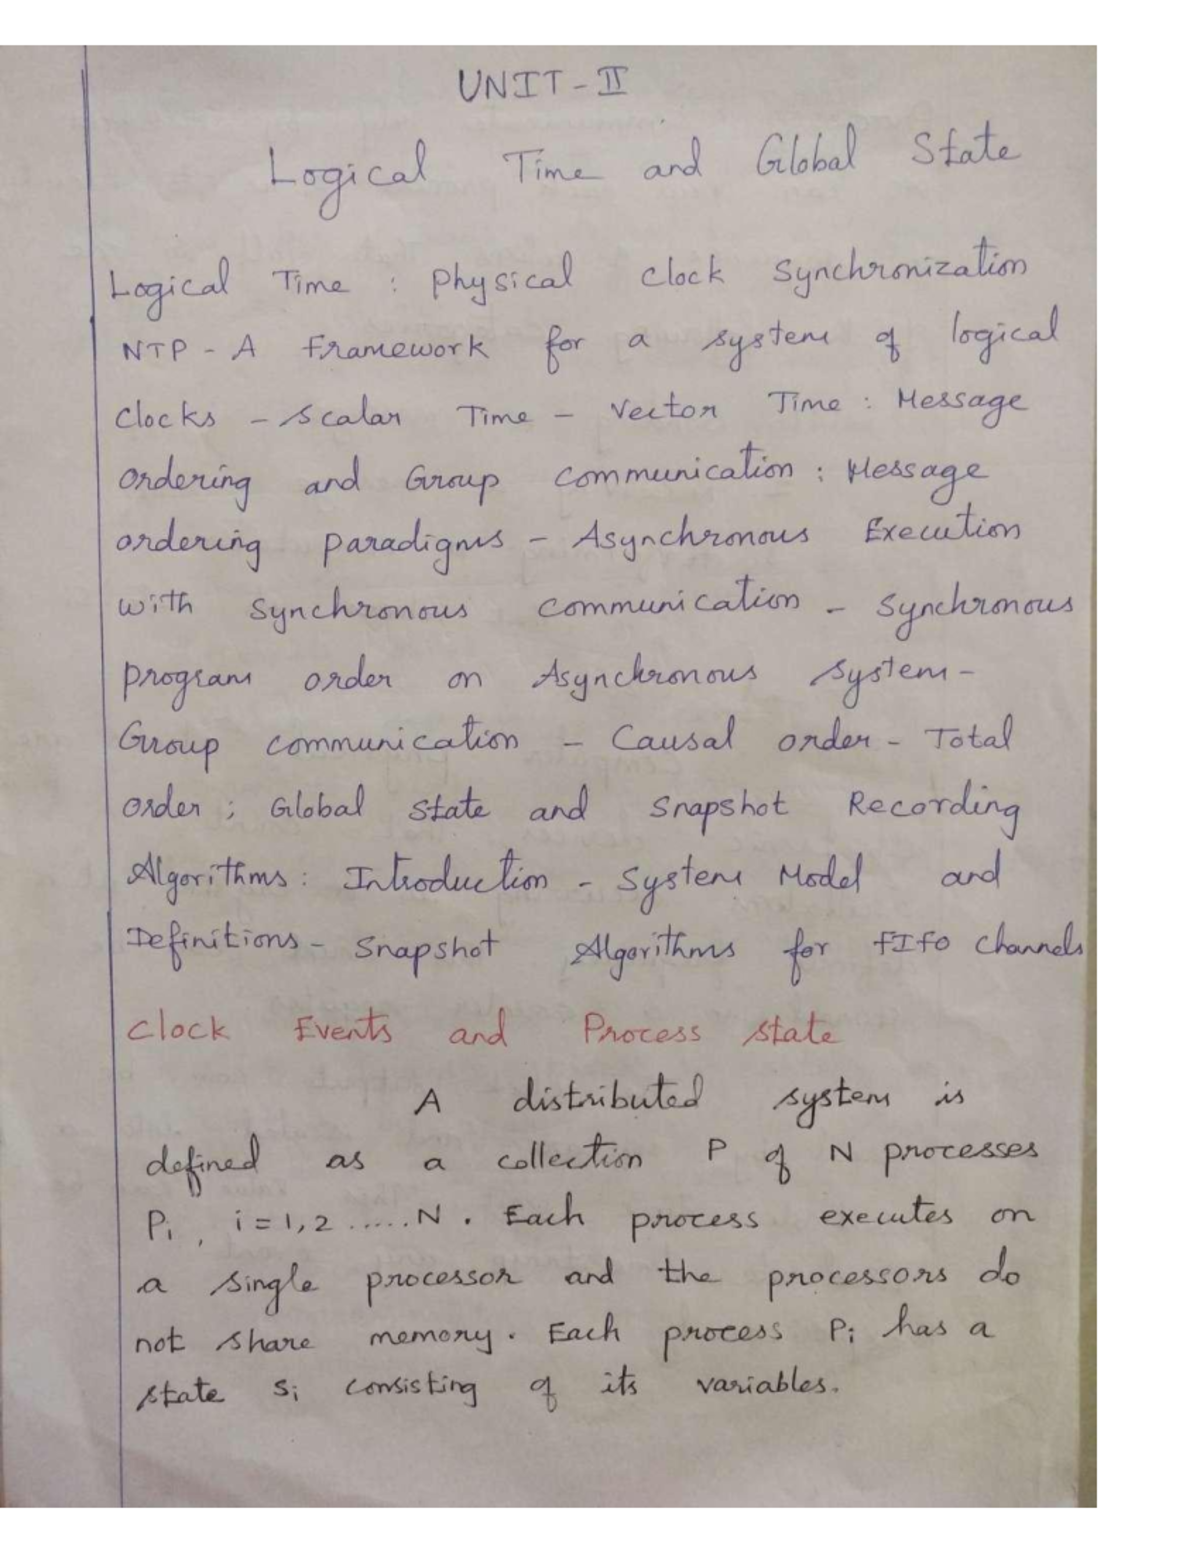 UNIT - II
Logical Time and Global State
Logical Time : Physical clock Synchronization
NTP - A framework for a system of logical
Clocks - Scalar Time - Vector Time : Message
ordering and Group communication : Message
ordering paradigms - Asynchronous Execution
with synchronous communication - Synchronous
program order on Asynchronous system -
Group communication - Causal order - Total
order ; Global state and Snapshot Recording
Algorithms : Introduction - System Model and
Definitions - Snapshot Algorithms for FIFO channels
Clock Events and Process state
A distributed system is
defined as a collection P of N processes
Pi , i = 1, 2 ..... N . Each process executes on
a single processor and the processors do
not share memory . Each process Pi has a
state Si consisting of its variables.